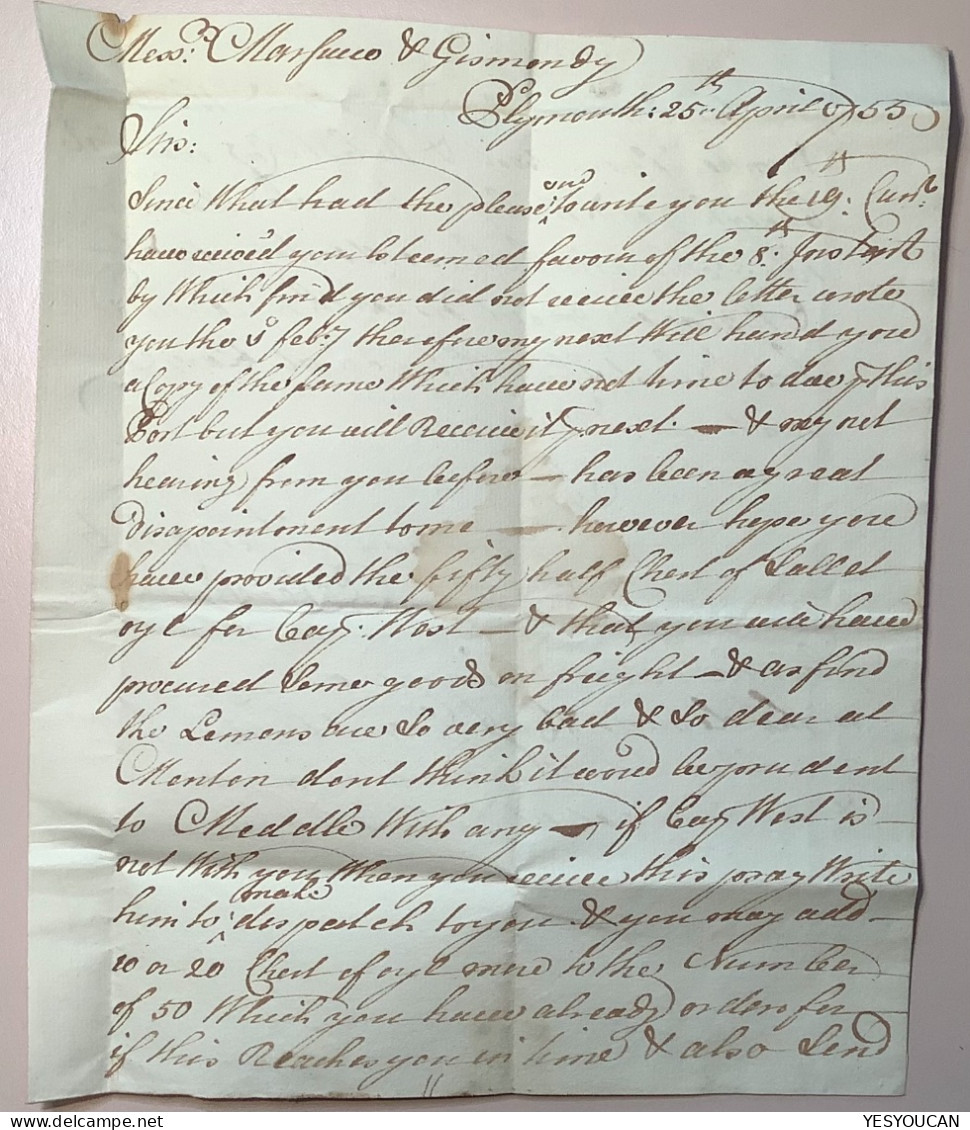 Mess.rs Marsucco & Gismondy
Plymouth: 25th April 1755
Sirs:
Since What had the pleasure to write you the 19th Curr.t
have receiv'd your Esteemed favour of the 8th Instant
by Which find you did not receive the letter wrote
you the 5 feb.y therefore my next Will hand you
a Copy of the same Which have not time to doe p this
Post but you will Receive it p next. — & my not
hearing from you before — has been a great
Disapointment to me — however hope you
have provided the fifty half Chest of Sallet
oyl for Cap.t West — & that you will have
procured Some goods on freight — & as find
the Lemons are So very bad & So dear at
Menton dont think it would be prudent
to Meddle With any — if Cap.t West is
not With you When you receive this pray Write
him to make dispatch to you & you may add
10 or 20 Chest of oyl more to the Number
of 50 Which you have already orders for
if this Reaches you in time & also Send
YESYOUCAN